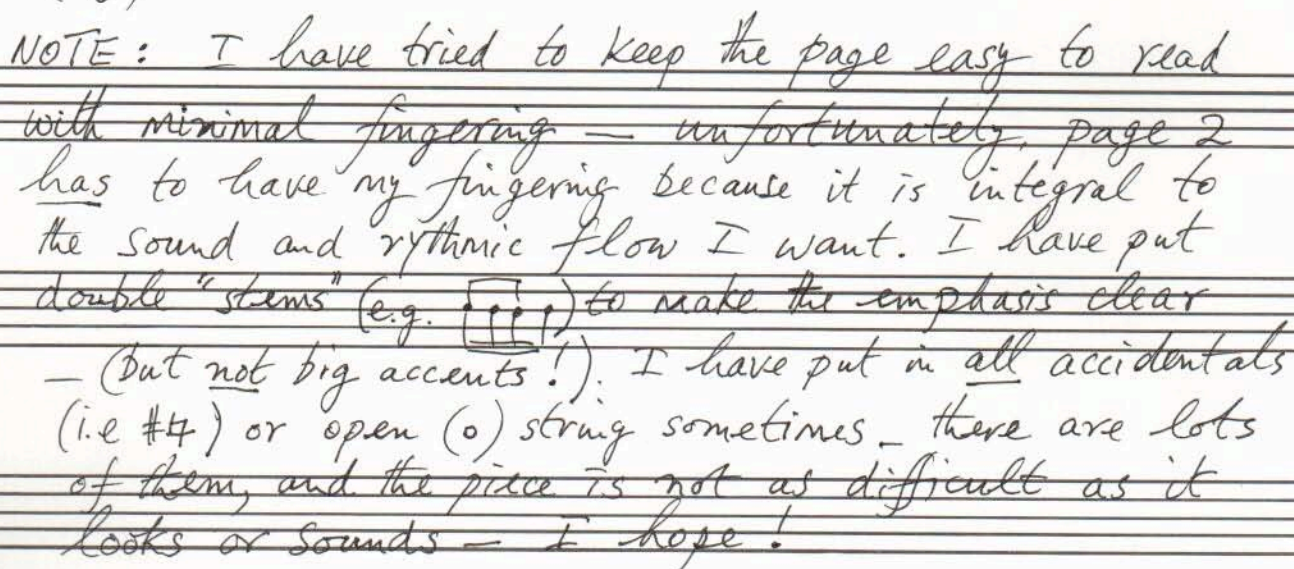 NOTE: I have tried to keep the page easy to read
with minimal fingering — unfortunately, page 2
has to have my fingering because it is integral to
the sound and rythmic flow I want. I have put
double "stems" (e.g. ) to make the emphasis clear
— (but not big accents!). I have put in all accidentals
(i.e #♮) or open (o) string sometimes — there are lots
of them, and the piece is not as difficult as it
looks or sounds — I hope!